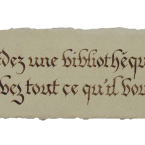 dez une bibliothèqu
vez tout ce qu'il vou